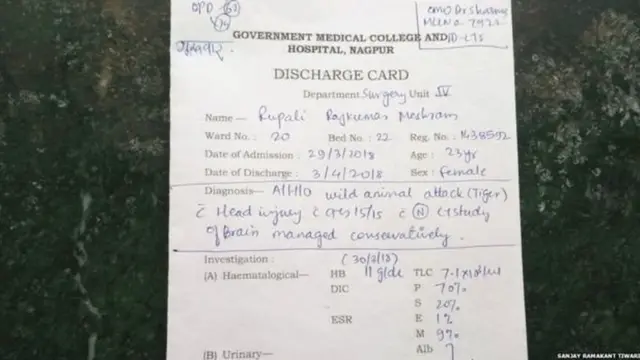 OPD 63
GOVERNMENT MEDICAL COLLEGE AND
HOSPITAL, NAGPUR
DISCHARGE CARD
Department Surgery Unit IV
Name — Rupali Rajkumar Meshram
Ward No. : 20 Bed No. : 22 Reg. No. :
Date of Admission : 29/3/2018 Age : 23yr
Date of Discharge : 3/4/2018 Sex : female
Diagnosis— A/H/O wild animal attack (Tiger)
c̄ Head injury c̄ GCS 15/15 c̄ Ⓝ CT study
of Brain managed conservatively.
Investigation : (30/3/18)
(A) Haematological— HB 11 g/dl TLC
DIC P 70%
S 20%
ESR E 1%
M 9%
(B) Urinary— Alb
SANJAY RAMAKANT TIWARI